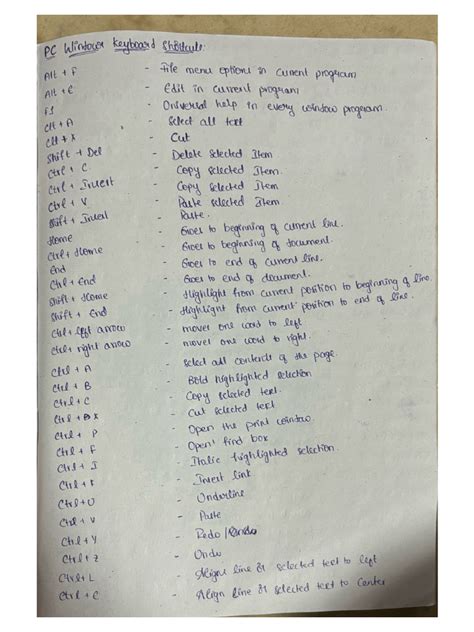 PC Windows Keyboard Shortcuts:
Alt + F - File menu options in current program
Alt + E - Edit in current program
F1 - Universal help in every window program.
Ctl + A - Select all text
Ctl + X - Cut
Shift + Del - Delete selected Item
Ctrl + C - Copy selected Item.
Ctrl + Insert - Copy selected Item
Ctrl + V - Paste selected Item
Shift + Insert - Paste.
Home - Goes to beginning of current line.
Ctrl + Home - Goes to beginning of document.
End - Goes to end of current line.
Ctrl + End - Goes to end of document.
Shift + Home - Highlight from current position to beginning of line.
Shift + End - Highlight from current position to end of line.
Ctrl + left arrow - moves one word to left
Ctrl + right arrow - moves one word to right.
Ctrl + A - Select all contents of the page.
Ctrl + B - Bold highlighted selection
Ctrl + C - Copy selected text.
Ctrl + X - Cut selected text.
Ctrl + P - Open the print window.
Ctrl + F - Open find box
Ctrl + I - Italic highlighted selection.
Ctrl + - Insert link
Ctrl + U - Underline
Ctrl + V - Paste
Ctrl + Y - Redo /
Ctrl + Z - Undo
Ctrl + L - Aligns line or selected text to left
Ctrl + C - Align line or selected text to Center